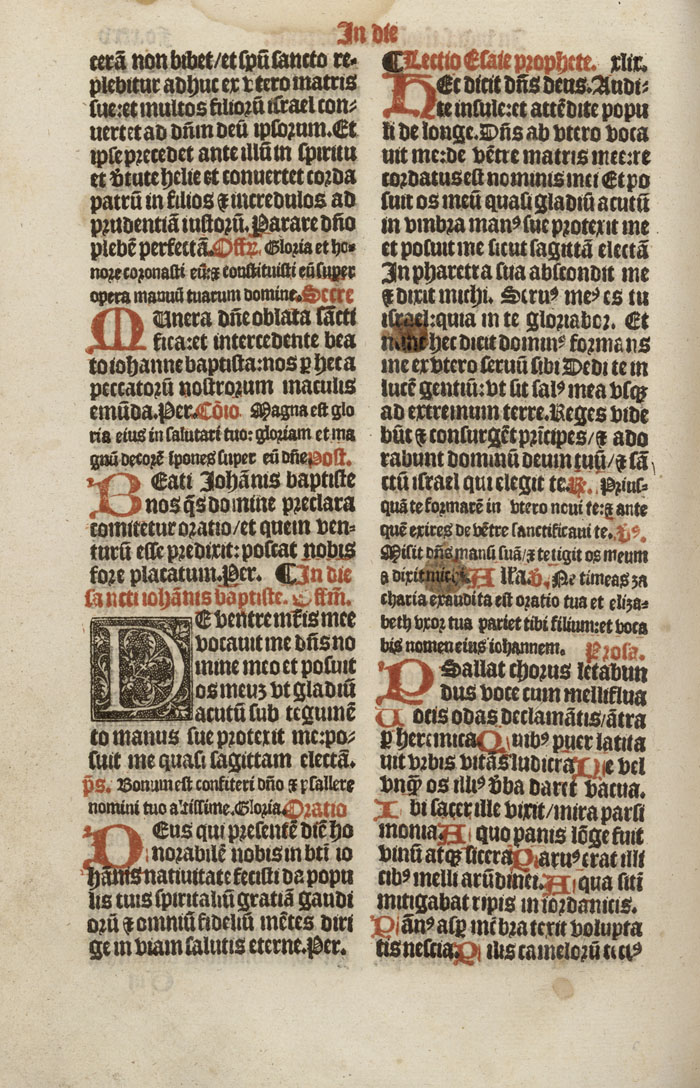 In die
cerā non bibet/et spū sancto re-
plebitur adhuc ex vtero matris
sue:et multos filiorū israel con-
uertet ad dn̄m deū ipsorum. Et
ipse precedet ante illū in spiritu
et v̄tute helie et conuertet corda
patrū in filios ⁊ incredulos ad
prudentiā iustorū. Parare dn̄o
plebē perfectā. Offr̄. Gloria et ho-
nore coronasti eū:⁊ constituisti eū super
opera manuū tuarum domine. Secre
MUnera dn̄e oblata sācti
fica:et intercedente bea
to iohanne baptista:nos ꝑ hec a
peccatorū nostrorum maculis
emūda. Per. Cōio. Magna est glo
ria eius in salutari tuo: gloriam et ma
gnū decorē īpones super eū dn̄e post.
BEati Johānis baptiste
nos q̄s domine preclara
comitetur oratio/et quem ven-
turū esse predixit: poscat nobis
fore placatum. Per. ¶ In die
sancti iohānis baptiste. Offm̄.
DE ventre mr̄is mee
vocauit me dn̄s no
mine meo et posuit
os meuz vt gladiū
acutū sub tegumē
to manus sue protexit me:po-
suit me quasi sagittam electā.
ps̄. Bonum est confiteri dn̄o ⁊ psallere
nomini tuo altissime. Gloria. Oratio
DEus qui presentē diē ho
norabilē nobis in bt̄i io
hānis natiuitate fecisti da popu
lis tuis spiritaliū gratiā gaudi
orū ⁊ omniū fideliū mētes diri
ge in viam salutis eterne. Per.
¶ Lectio Esaie prophete. xlix.
HEc dicit dn̄s deus. Audi-
te insule:et attēdite popu
li de longe. Dn̄s ab vtero voca
uit me:de vētre matris mee:re
cordatus est nominis mei Et po
suit os meū quasi gladiū acutū
in vmbra manꝰ sue protexit me
et posuit me sicut sagittā electā
In pharetra sua abscondit me
⁊ dixit michi. Seruꝰ meꝰ es tu
israel:quia in te gloriabor. Et
nunc hec dicit dominꝰ formans
me ex vtero seruū sibi Dedi te in
lucē gentiū: vt sit salꝰ mea vsqꝫ
ad extremum terre. Reges vide
būt ⁊ consurgēt prīcipes/⁊ ado
rabunt dominū deum tuū/⁊ sā
ctū israel qui elegit te. R̄. Prius-
quā te formarē in vtero noui te:⁊ ante
quē exires de vētre sanctificaui te. v̄s.
Misit dn̄s manū suā/⁊ tetigit os meum
⁊ dixit michi. Alła v̄. Ne timeas za
charia exaudita est oratio tua et eliza-
beth vxor tua pariet tibi filium:et voca
bis nomen eius iohannem. Prosa.
PSallat chorus letabun
dus voce cum melliflua
Uocis odas declamātis/ātra
ꝑ heremica Quibꝰ puer latita
uit vrbis vitās ludicra Ne vel
vnqꝫ os illiꝰ v̄ba daret vacua.
Ibi sacer ille vixit/mira parsi
monia. Aquo panis lōge fuit
vinū atqꝫ sicera Parꝰ erat illi
cibꝰ melli arūdinei. Aqua sitī
mitigabat ripis in iordanicis.
Pānꝰ asꝑ mēbra texit volupta
tis nescia. Pilis camelorū